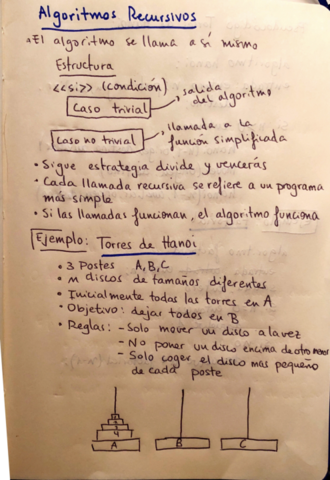 Algoritmos Recursivos
• El algoritmo se llama a sí mismo
Estructura
<<si>> (condición)
Caso trivial
salida
del algoritmo
Caso no trivial
llamada a la
función simplificada
• Sigue estrategia divide y vencerás
• Cada llamada recursiva se refiere a un programa
más simple
• Si las llamadas funcionan, el algoritmo funciona
Ejemplo: Torres de Hanoi
• 3 Postes A, B, C
• n discos de tamaños diferentes
• Inicialmente todas las torres en A
• Objetivo: dejar todos en B
• Reglas: - Solo mover un disco a la vez
- No poner un disco encima de otro menor
- Solo coger el disco mas pequeño
de cada poste
4
A
B
C